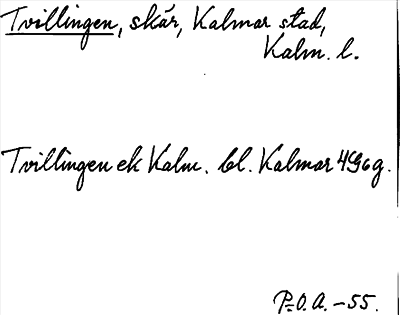 Tvillingen, skär, Kalmar stad,
Kalm. l.
Tvillingen ek Kalm. bl. Kalmar 4G6g.
P.O.A. -55.